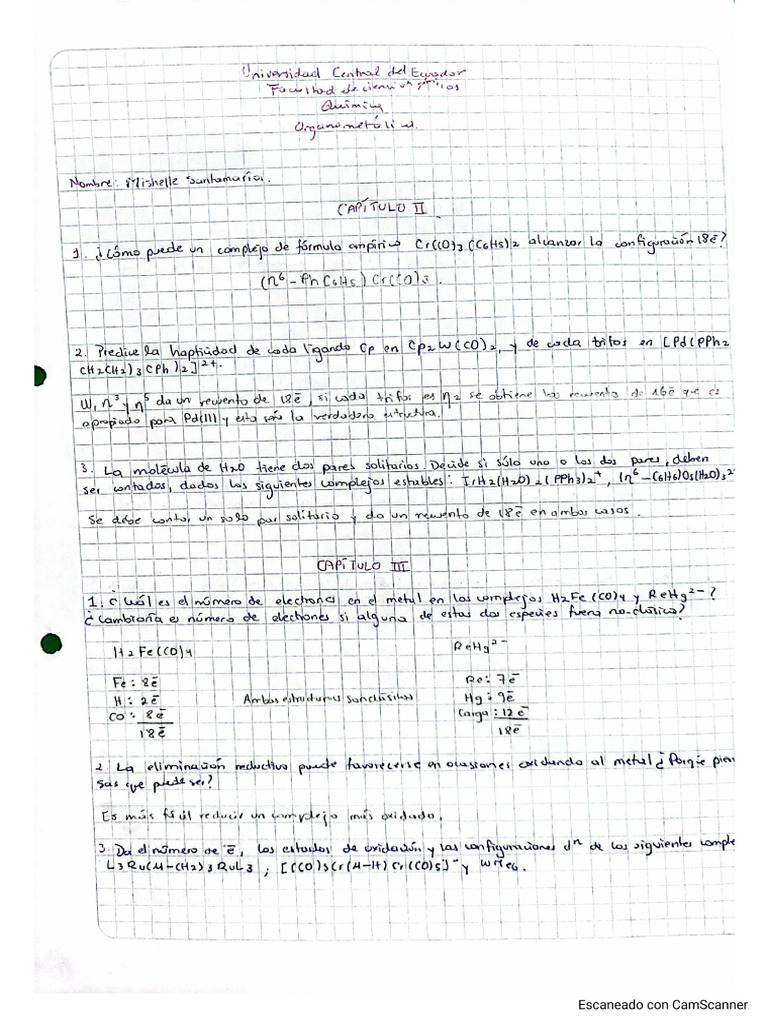 Universidad Central del Ecuador
Facultad de ciencias químicas
Química
Organometálica.
Nombre: Mishelle Santamaría.
CAPÍTULO II
1. ¿Cómo puede un complejo de fórmula empírica Cr(CO)3(C6H5)2 alcanzar la configuración 18ē?
(η6-PhC6H5)Cr(CO)3.
2. Predice la hapticidad de cada ligando Cp en Cp2W(CO)2, y de cada trifos en [Pd(PPh2
CH2CH2)3CPh)2]2+.
W, η3 y η5 da un recuento de 18ē, si cada trifos es η2 se obtiene los recuento de 16ē que es
apropiado para Pd(II) y esta son la verdadera estructura.
3. La molécula de H2O tiene dos pares solitarios. Decide si sólo uno o los dos pares, deben
ser contados, dados los siguientes complejos estables: IrH2(H2O)2(PPh3)2+, (η6-C6H6)Os(H2O)3 2+
Se debe contar un solo par solitario y da un recuento de 18ē en ambos casos.
CAPÍTULO III
1. ¿Cuál es el número de electrones en el metal en los complejos H2Fe(CO)4 y ReHg2-?
¿Cambiaría es número de electrones si alguna de estas dos especies fuera no-clásica?
H2Fe(CO)4 ReHg2-
Fe: 8ē Re: 7ē
H: 2ē Ambas estructuras son clásicas Hg: 9ē
CO: 8ē Carga: 12ē
18ē 18ē
2. La eliminación reductiva puede favorecerse en ocasiones oxidando al metal ¿Porqué pien
sas que puede ser?
Es más fácil reducir un complejo más oxidado.
3. Da el número de ē, los estados de oxidación y las configuraciones dn de los siguientes comple
L3Ru(M-CH2)3RuL3, [(CO)5Cr(M-H)Cr(CO)5]- y WMe6.
Escaneado con CamScanner